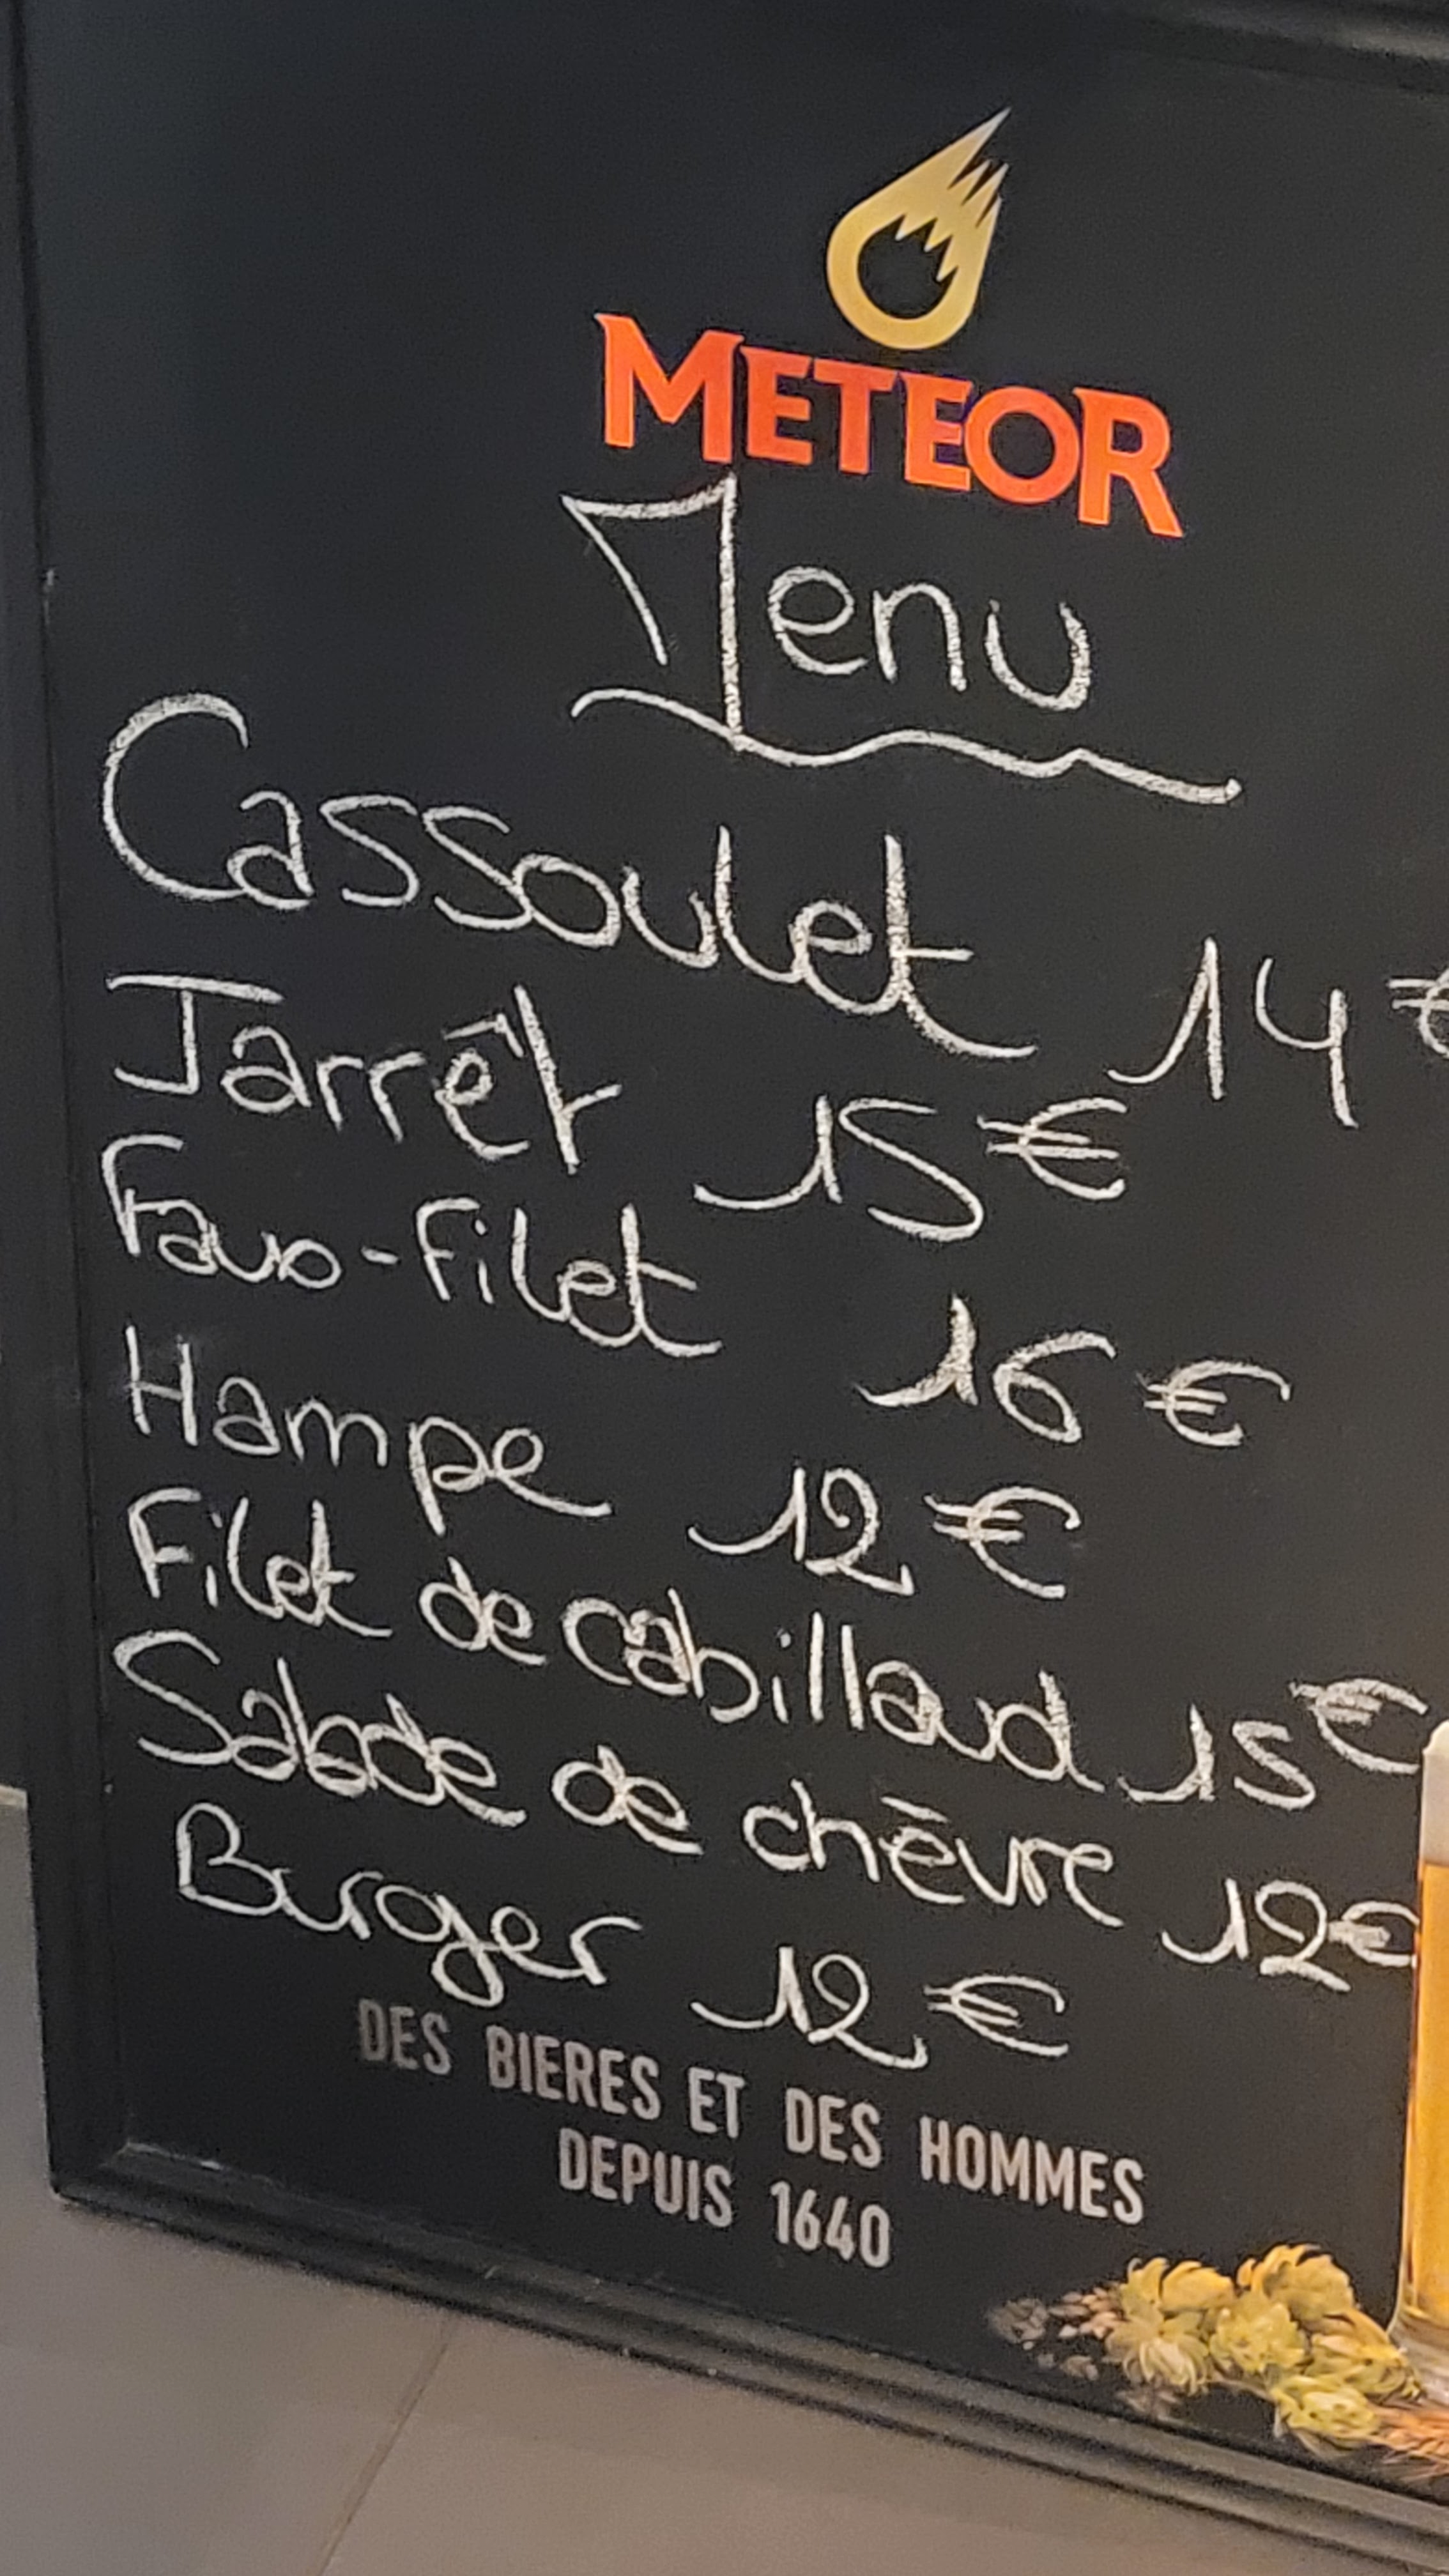 METEOR
Menu
Cassoulet 14€
Jarrêt 15€
Faux-Filet 16€
Hampe 12€
Filet de cabillaud 15€
Salade de chèvre 12€
Burger 12€
DES BIERES ET DES HOMMES
DEPUIS 1640